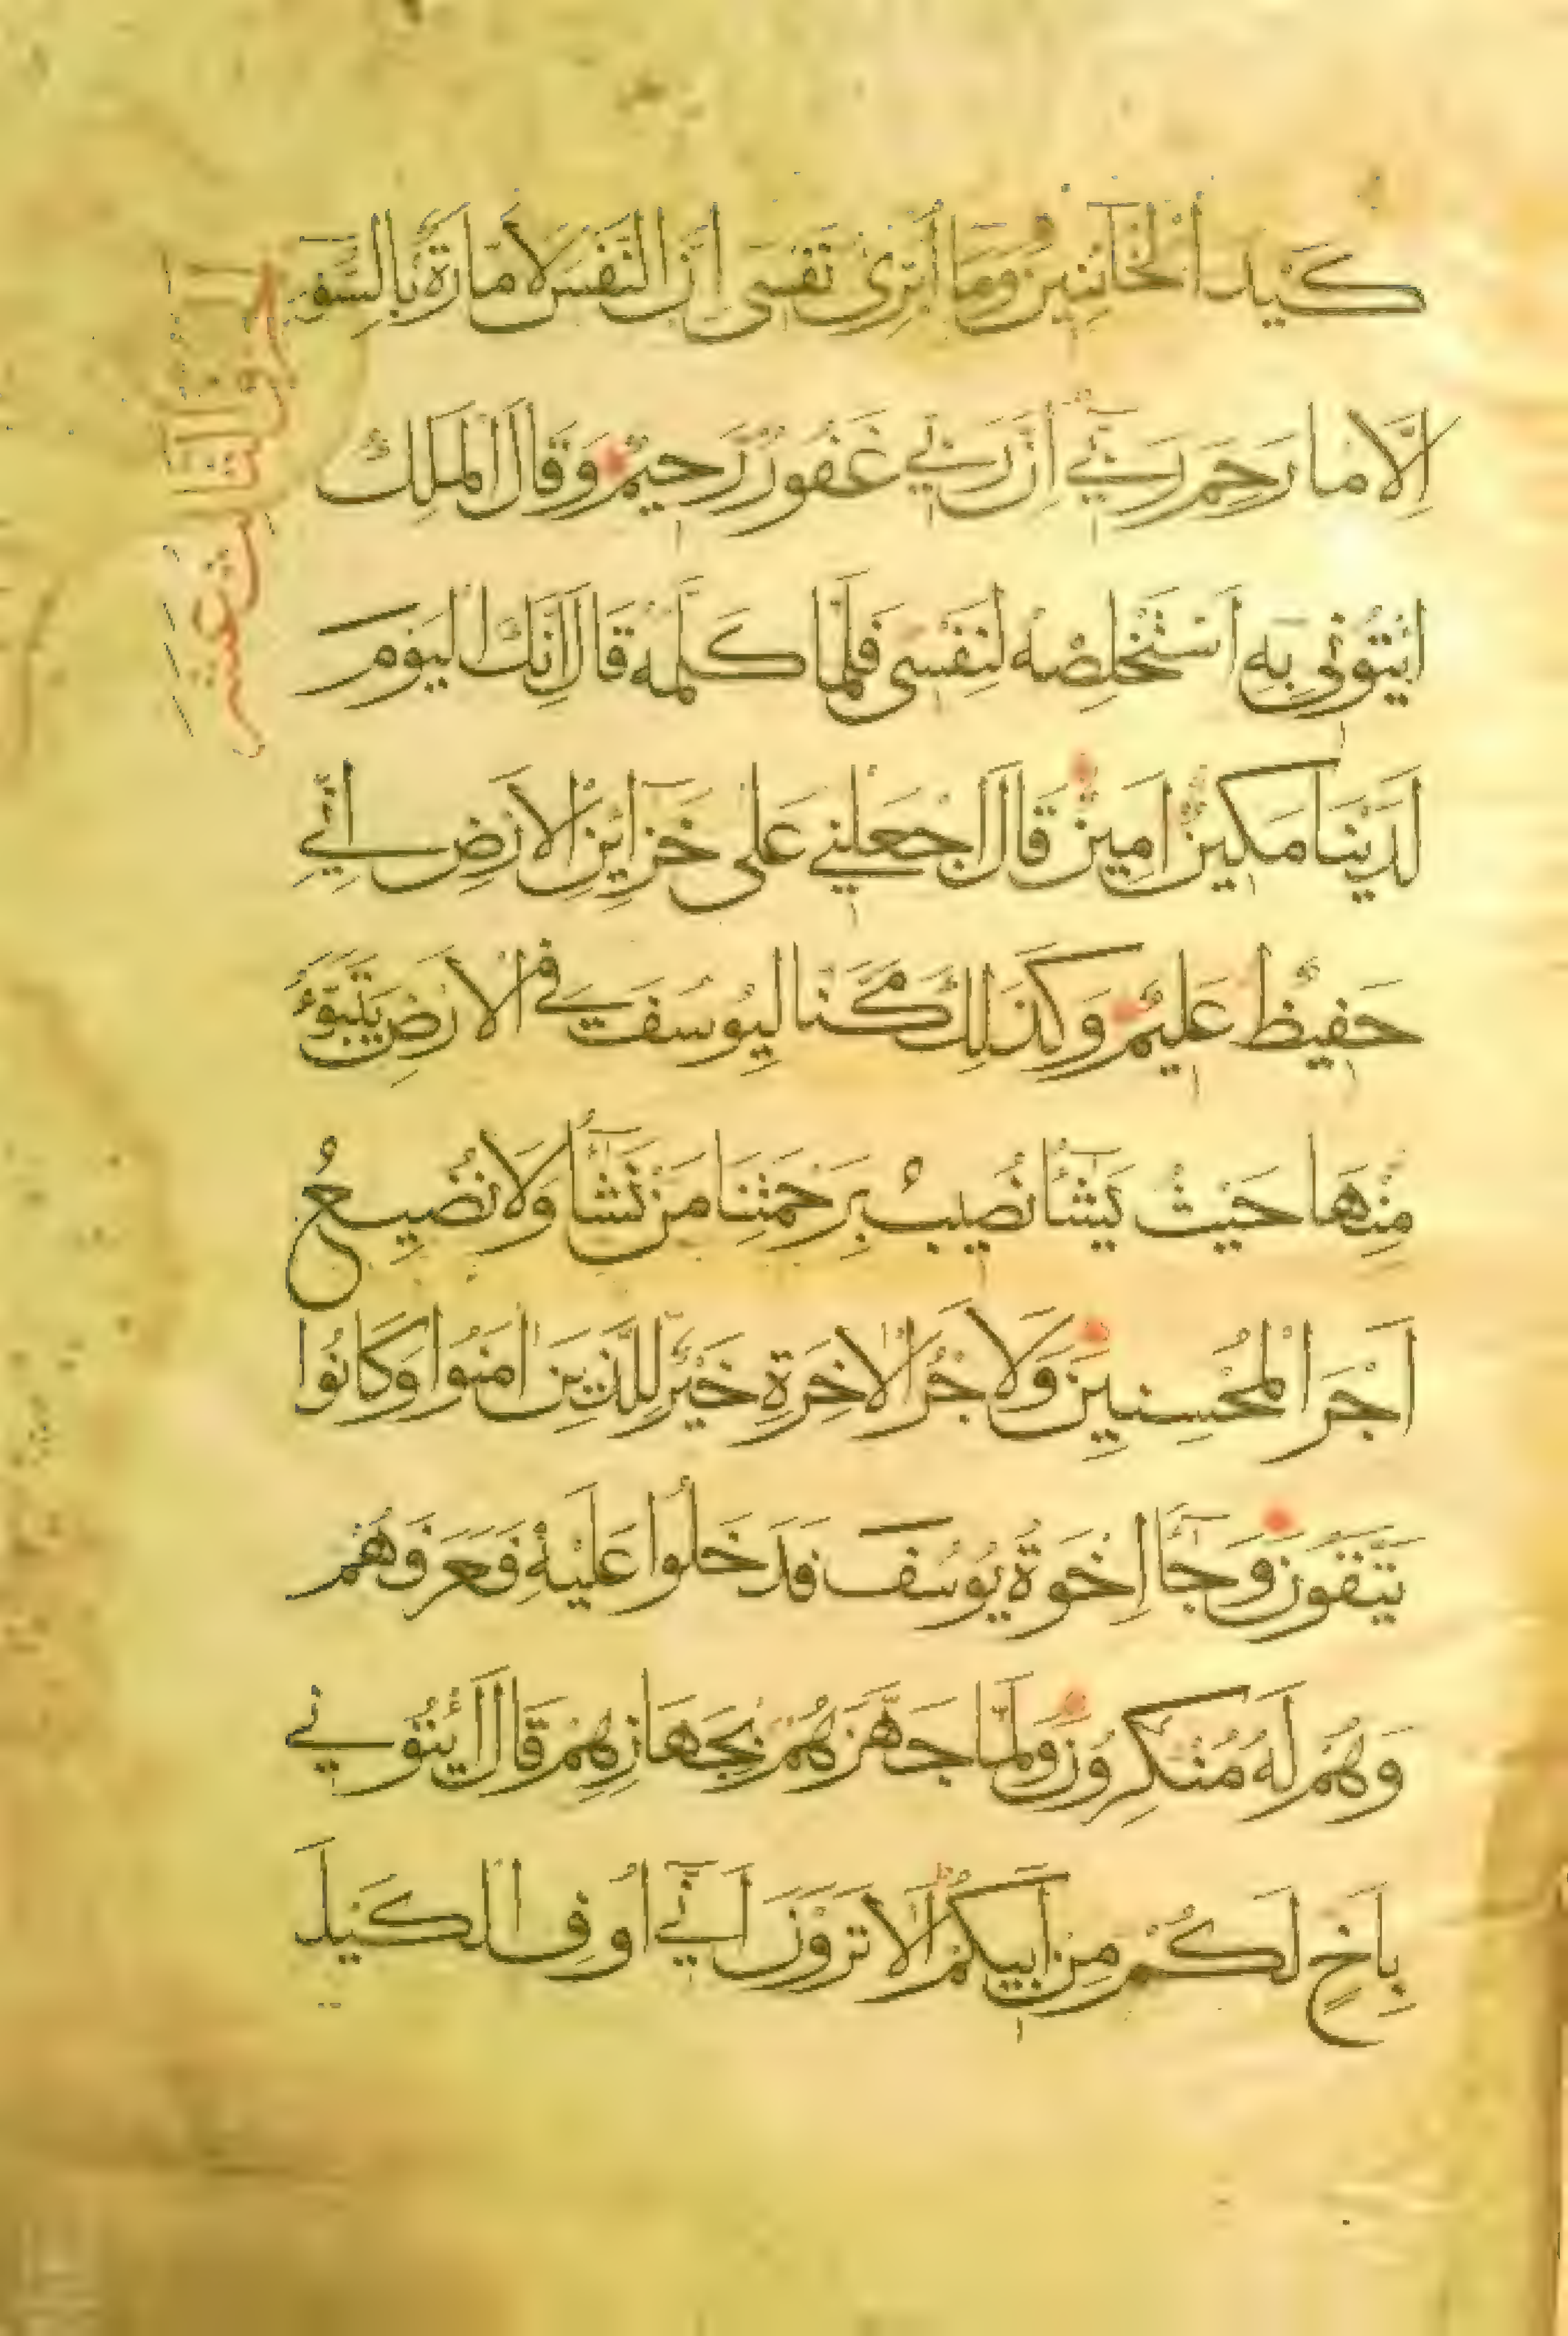 كَيْدَ الْخَائِنِينَ وَمَا أُبَرِّئُ نَفْسِي إِنَّ النَّفْسَ لَأَمَّارَةٌ بِالسُّوءِ
إِلَّا مَا رَحِمَ رَبِّي إِنَّ رَبِّي غَفُورٌ رَحِيمٌ وَقَالَ الْمَلِكُ
ائْتُونِي بِهِ أَسْتَخْلِصْهُ لِنَفْسِي فَلَمَّا كَلَّمَهُ قَالَ إِنَّكَ الْيَوْمَ
لَدَيْنَا مَكِينٌ أَمِينٌ قَالَ اجْعَلْنِي عَلَى خَزَائِنِ الْأَرْضِ إِنِّي
حَفِيظٌ عَلِيمٌ وَكَذَلِكَ مَكَّنَّا لِيُوسُفَ فِي الْأَرْضِ يَتَبَوَّءُ
مِنْهَا حَيْثُ يَشَاءُ نُصِيبُ بِرَحْمَتِنَا مَنْ نَشَاءُ وَلَا نُضِيعُ
أَجْرَ الْمُحْسِنِينَ وَلَأَجْرُ الْآخِرَةِ خَيْرٌ لِلَّذِينَ آمَنُوا وَكَانُوا
يَتَّقُونَ وَجَاءَ إِخْوَةُ يُوسُفَ فَدَخَلُوا عَلَيْهِ فَعَرَفَهُمْ
وَهُمْ لَهُ مُنْكِرُونَ وَلَمَّا جَهَّزَهُمْ بِجَهَازِهِمْ قَالَ ائْتُونِي
بِأَخٍ لَكُمْ مِنْ أَبِيكُمْ أَلَا تَرَوْنَ أَنِّي أُوفِي الْكَيْلَ
الثالث عشر